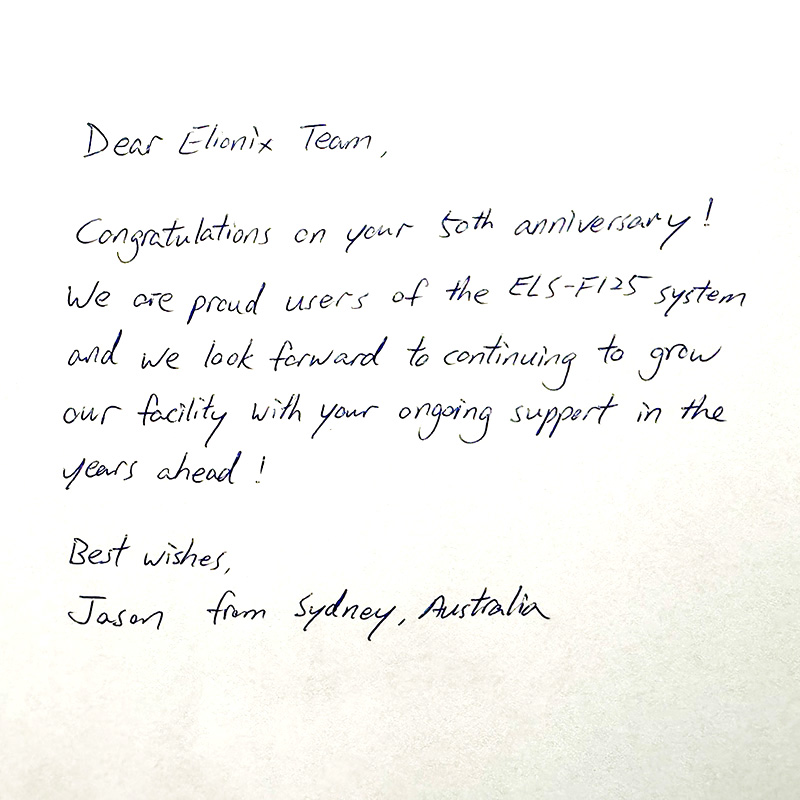 Dear Elionix Team,
Congratulations on your 50th anniversary!
We are proud users of the ELS-F125 system
and we look forward to continuing to grow
our facility with your ongoing support in the
years ahead!
Best wishes,
Jason from Sydney, Australia